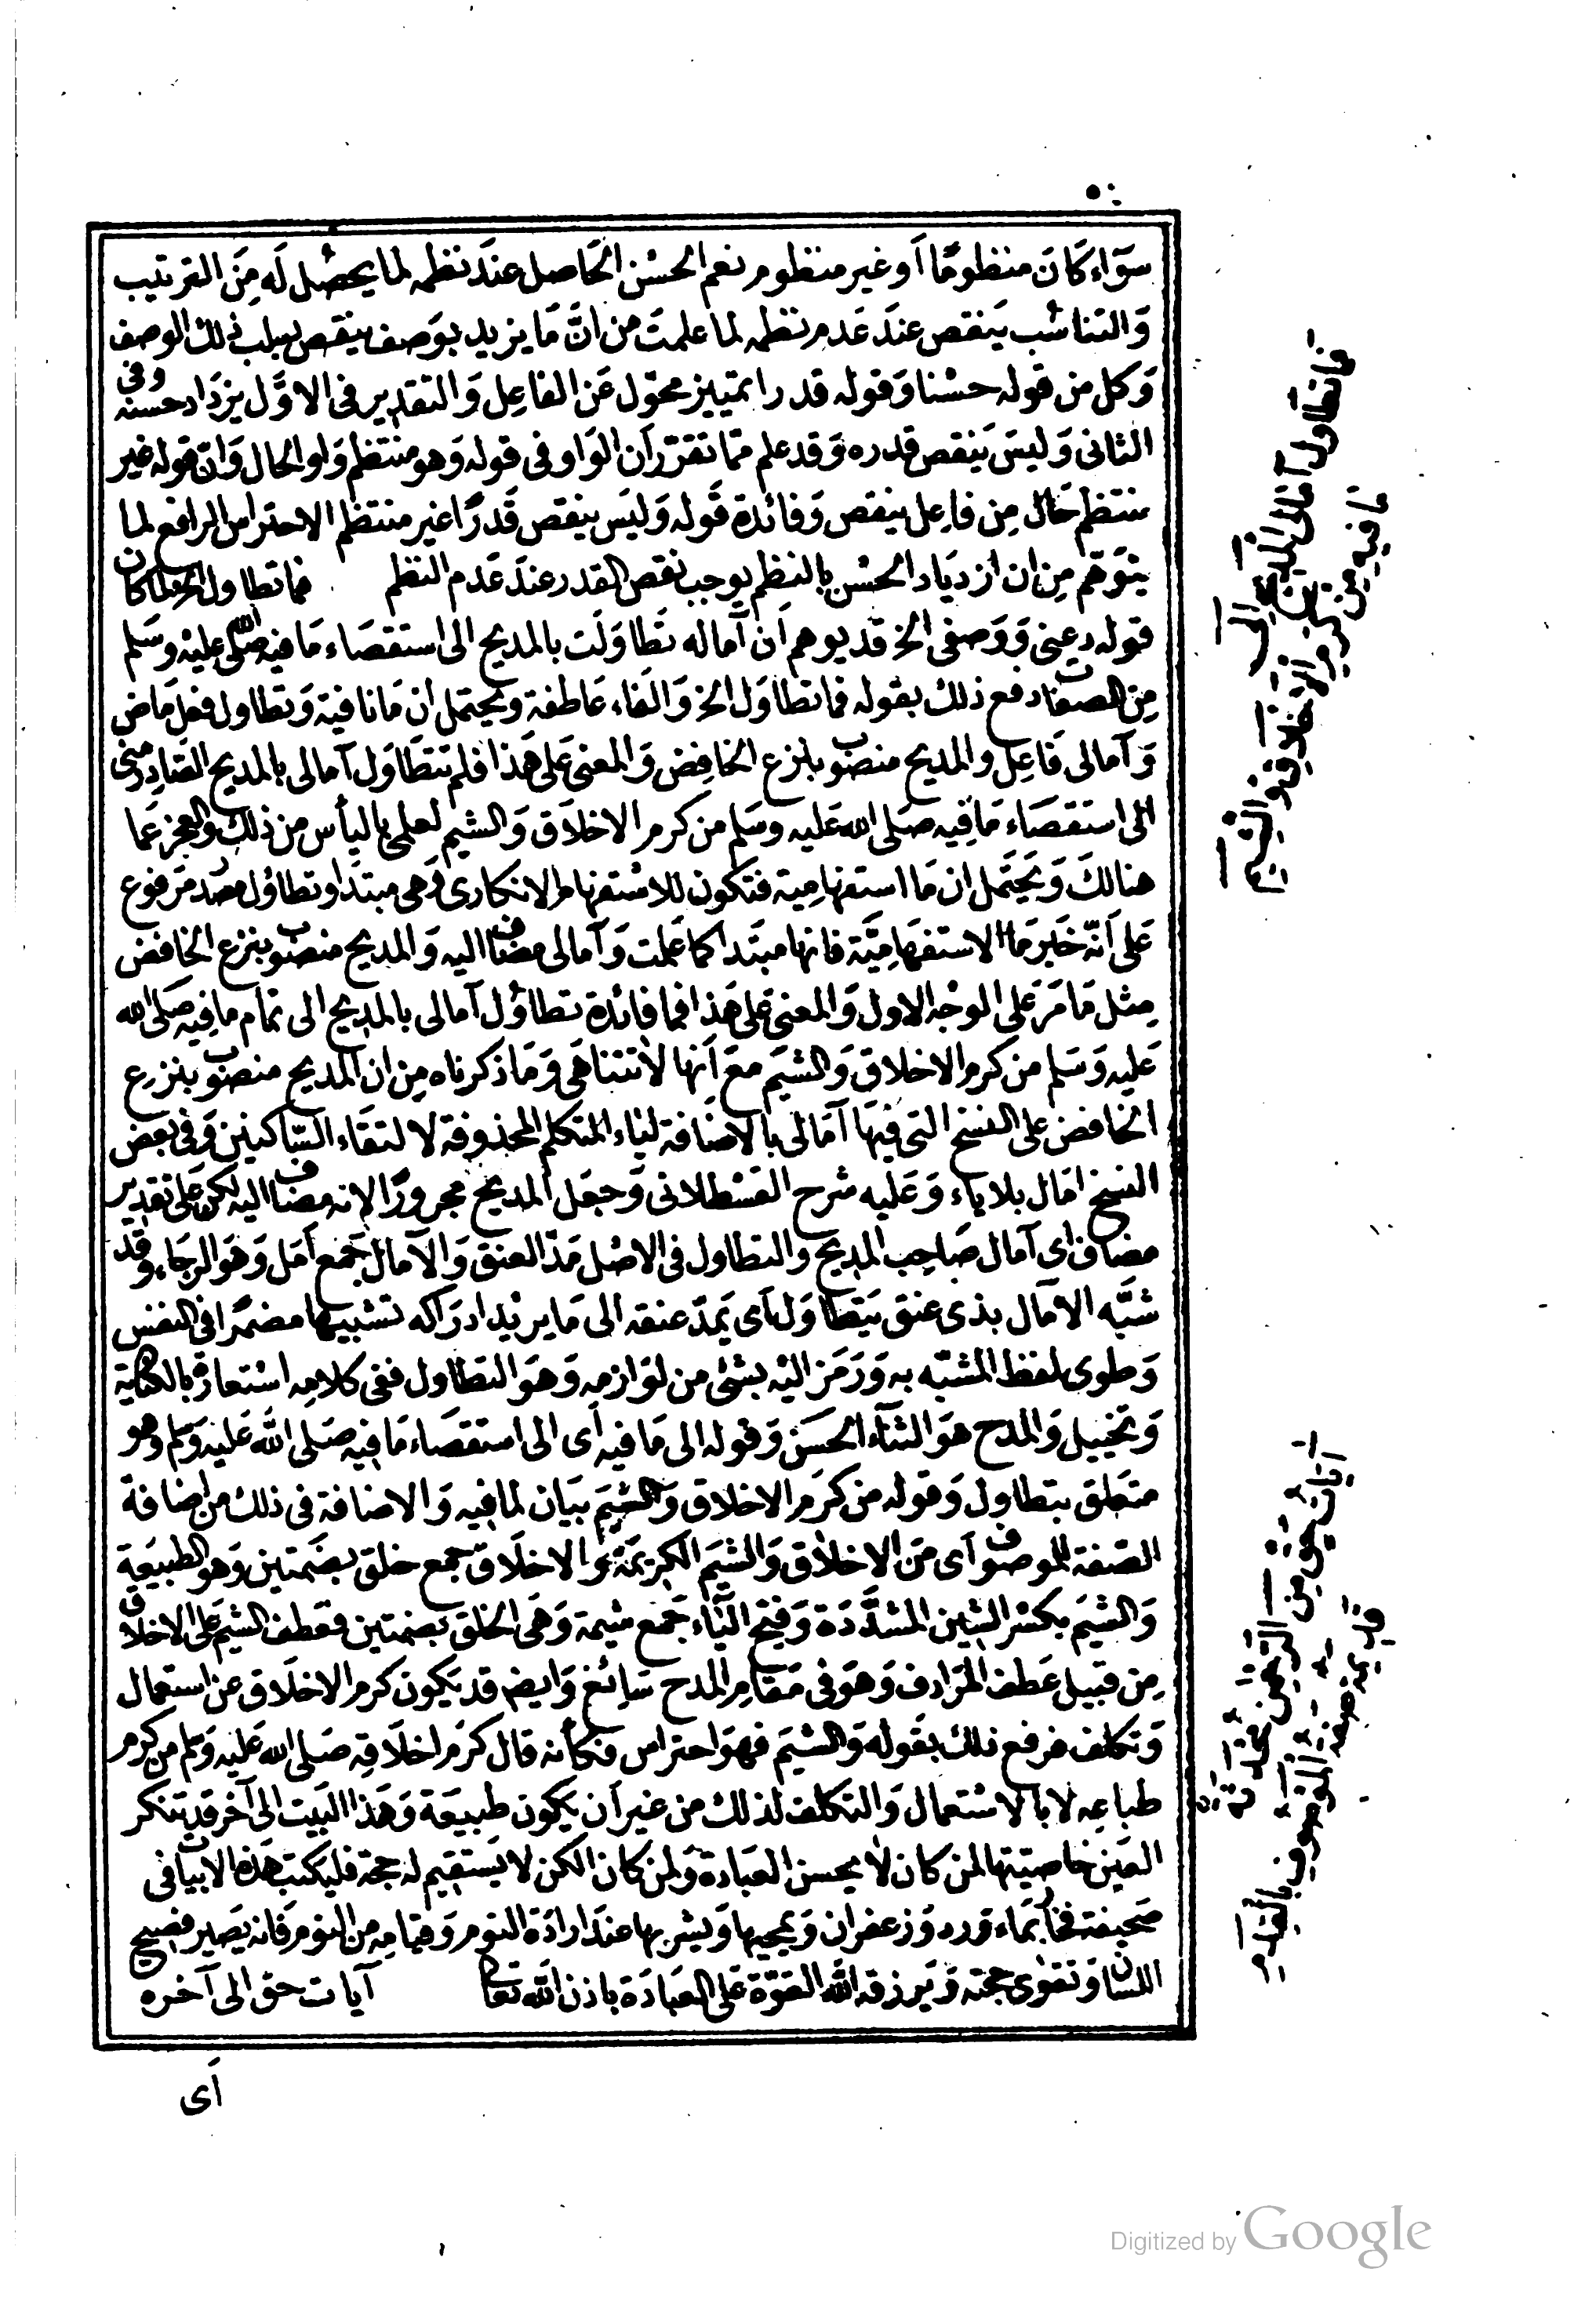 سواء كان منظومًا أو غير منظوم نعم الحسن الحاصل عند نظمه لما يحصل له من الترتيب
والتناسب ينقص عند عدم نظمه لما علمت من ان ما يزيد بوصف ينقص بسلب ذلك الوصف
وكل من قوله حسنا وقوله قدرا تمييز محوّل عن الفاعل والتقدير فى الاول يزداد حسنه وفى
الثانى وليس ينقص قدره وقد علم مما تقرر أن الواو فى قوله وهو منتظم واو الحال وان قوله غير
منتظم حال من فاعل ينقص وفائدة قوله وليس ينقص قدرًا غير منتظم الاحتراس الرافع لما
يتوهم من ان ازدياد الحسن بالنظم يوجب نقص القدر عند عدم النظم فما تطاول الخ لما كان
قوله دعنى ووصفى الخ قد يوهم أن آماله تطاولت بالمديح الى استقصاء ما فيه صلى الله عليه وسلم
من الصفات دفع ذلك بقوله فما تطاول الخ والفاء عاطفة ويحتمل ان ما نافية وتطاول فعل ماض
وآمالى فاعل والمديح منصوب بنزع الخافض والمعنى على هذا فلم تتطاول آمالى بالمديح الصادر منى
الى استقصاء ما فيه صلى الله عليه وسلم من كرم الاخلاق والشيم لعلمى باليأس من ذلك والعجز عما
هنالك ويحتمل ان ما استفهامية فتكون للاستفهام الانكارى وهى مبتدأ وتطاول مصدر مرفوع
على أنه خبر ما الاستفهامية فانها مبتدا كما علمت وآمالى مضاف اليه والمديح منصوب بنزع الخافض
مثل ما مر على الوجه الاول والمعنى على هذا فما فائدة تطاول آمالى بالمديح الى تمام ما فيه صلى الله
عليه وسلم من كرم الاخلاق والشيم مع أنها لا تتناهى وما ذكرناه من ان المديح منصوب بنزع
الخافض على النسخ التى فيها آمالى بالاضافة لياء المتكلم المحذوفة لالتقاء الساكنين وفى بعض
النسخ امال بلا ياء وعليه شرح القسطلانى وجعل المديح مجرورًا لانه مضاف اليه لكن على تقدير
مضاف اى آمال صاحب المديح والتطاول فى الاصل مدّ العنق والآمال جمع أمل وهو الرجاء وقد
شبّه الآمال بذى عنق يتطاول أى يمدّ عنقه الى ما يريد ادراكه تشبيها مضمرًا فى النفس
وطوى لفظ المشبّه به ورمز اليه بشئ من لوازمه وهو التطاول ففى كلامه استعارة بالكناية
وتخييل والمدح هو الثناء الحسن وقوله الى ما فيه أى الى استقصاء ما فيه صلى الله عليه وسلم وهو
متعلق بتطاول وقوله من كرم الاخلاق والشيم بيان لما فيه والاضافة فى ذلك من اضافة
الصفة للموصوف أى من الاخلاق والشيم الكريمة والاخلاق جمع خلق بضمتين وهو الطبيعة
والشيم بكسر الشين المشدّدة وفتح الياء جمع شيمة وهى الخلق بضمتين فعطف الشيم على الاخلاق
من قبيل عطف المرادف وهو فى مقام المدح سائغ وايضا قد يكون كرم الاخلاق عن استعمال
وتكلف فرفع ذلك بقوله والشيم فهو احتراس فكأنه قال كرم اخلاقه صلى الله عليه وسلم من كرم
طباعه لا بالاستعمال والتكلف لذلك من غير أن يكون طبيعة وهذا البيت الى آخر قد تنكر
العين خاصيتها لمن كان لا يحسن العبادة ولمن كان الكن لا يستقيم له حجة فليكتب هذه الابيات فى
صحيفة بماء ورد وزعفران ويمحيها ويشربها عند ارادة النوم وقيامه من النوم فانه يصير فصيح
اللسان وتقوى حجته ويرزقه الله القوّة على العبادة باذن الله تعالى آيات حق الى آخره
أى
فما تطاول آمالى المديح الى
ما فيه من كرم الاخلاق والشيم
آيات حق من الرحمن محدثة
قديمة صفة الموصوف بالقدم
Digitized by Google